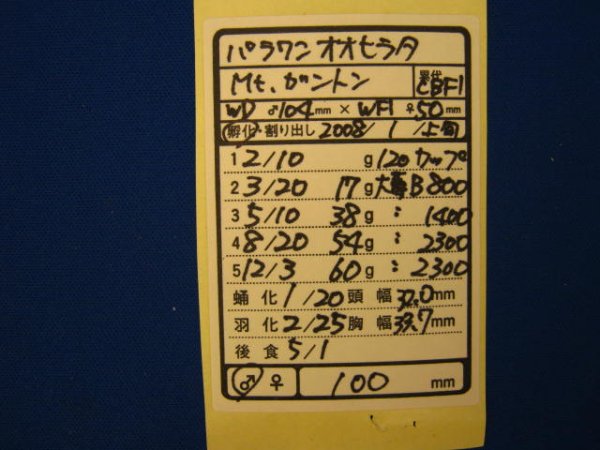 パラワンオオヒラタ
Mt.ガントン 累代 CBF1
WD ♂104mm × WF1 ♀50mm
孵化・割り出し 2008/1/上旬
1 2/10 g 120カップ
2 3/20 17g 大夢B800
3 5/10 38g 〃 1400
4 8/20 54g 〃 2300
5 12/3 60g 〃 2300
蛹化 1/20 頭幅 32.0mm
羽化 2/25 胸幅 33.7mm
後食 5/1
♂ ♀ 100 mm